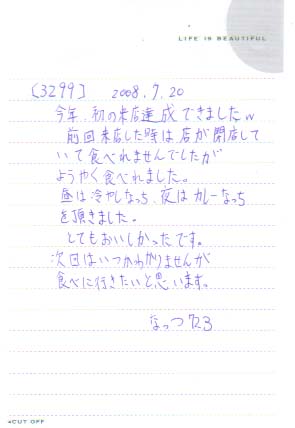 LIFE IS BEAUTIFUL
[3299] 2008.7.20
今年、初の来店達成できましたw
前回来店した時は店が閉店して
いて食べれませんでしたが
ようやく食べれました。
昼は冷やしなっち、夜はカレーなっち
を頂きました。
とてもおいしかったです。
次回はいつかわかりませんが
食べに行きたいと思います。
なっつ723
◂CUT OFF